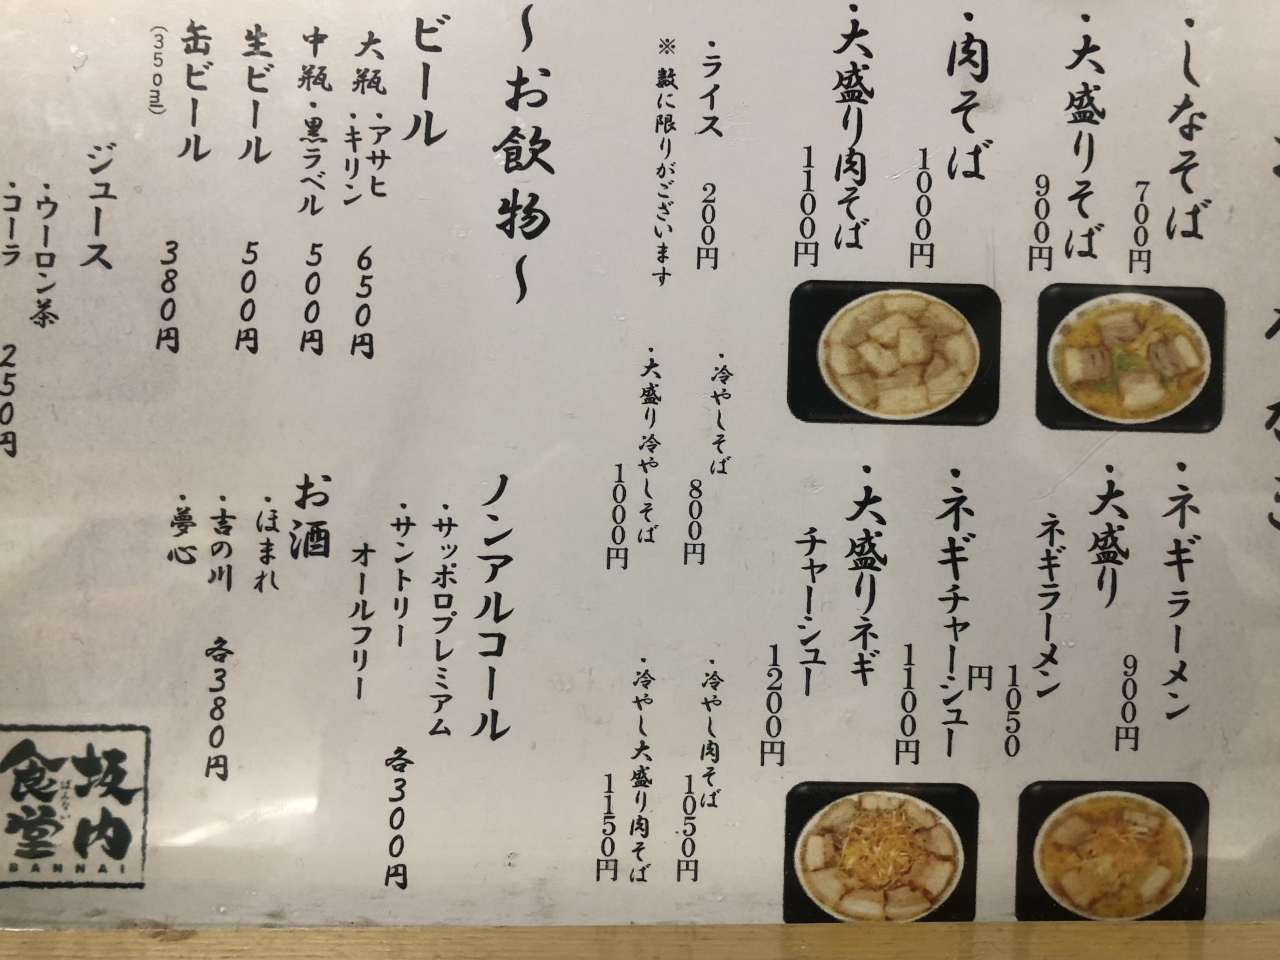 ・しなそば
700円
・大盛りそば
900円
・肉そば
1000円
・大盛り肉そば
1100円
・ネギラーメン
900円
・大盛り
ネギラーメン
1050
円
・ネギチャーシュー
1100円
・大盛りネギ
チャーシュー
1200円
・ライス 200円
※数に限りがございます
・冷やしそば
800円
・大盛り冷やしそば
1000円
・冷やし肉そば
1050円
・冷やし大盛り肉そば
1150円
～お飲物～
ビール
大瓶・アサヒ
・キリン 650円
中瓶・黒ラベル 500円
生ビール 500円
缶ビール 380円
(350ml)
ジュース
・ウーロン茶
・コーラ 250円
ノンアルコール
・サッポロプレミアム
・サントリー
オールフリー
各300円
お酒
・ほまれ
・吉の川 各380円
・夢心
坂内
食堂
ばんない
BANNAI